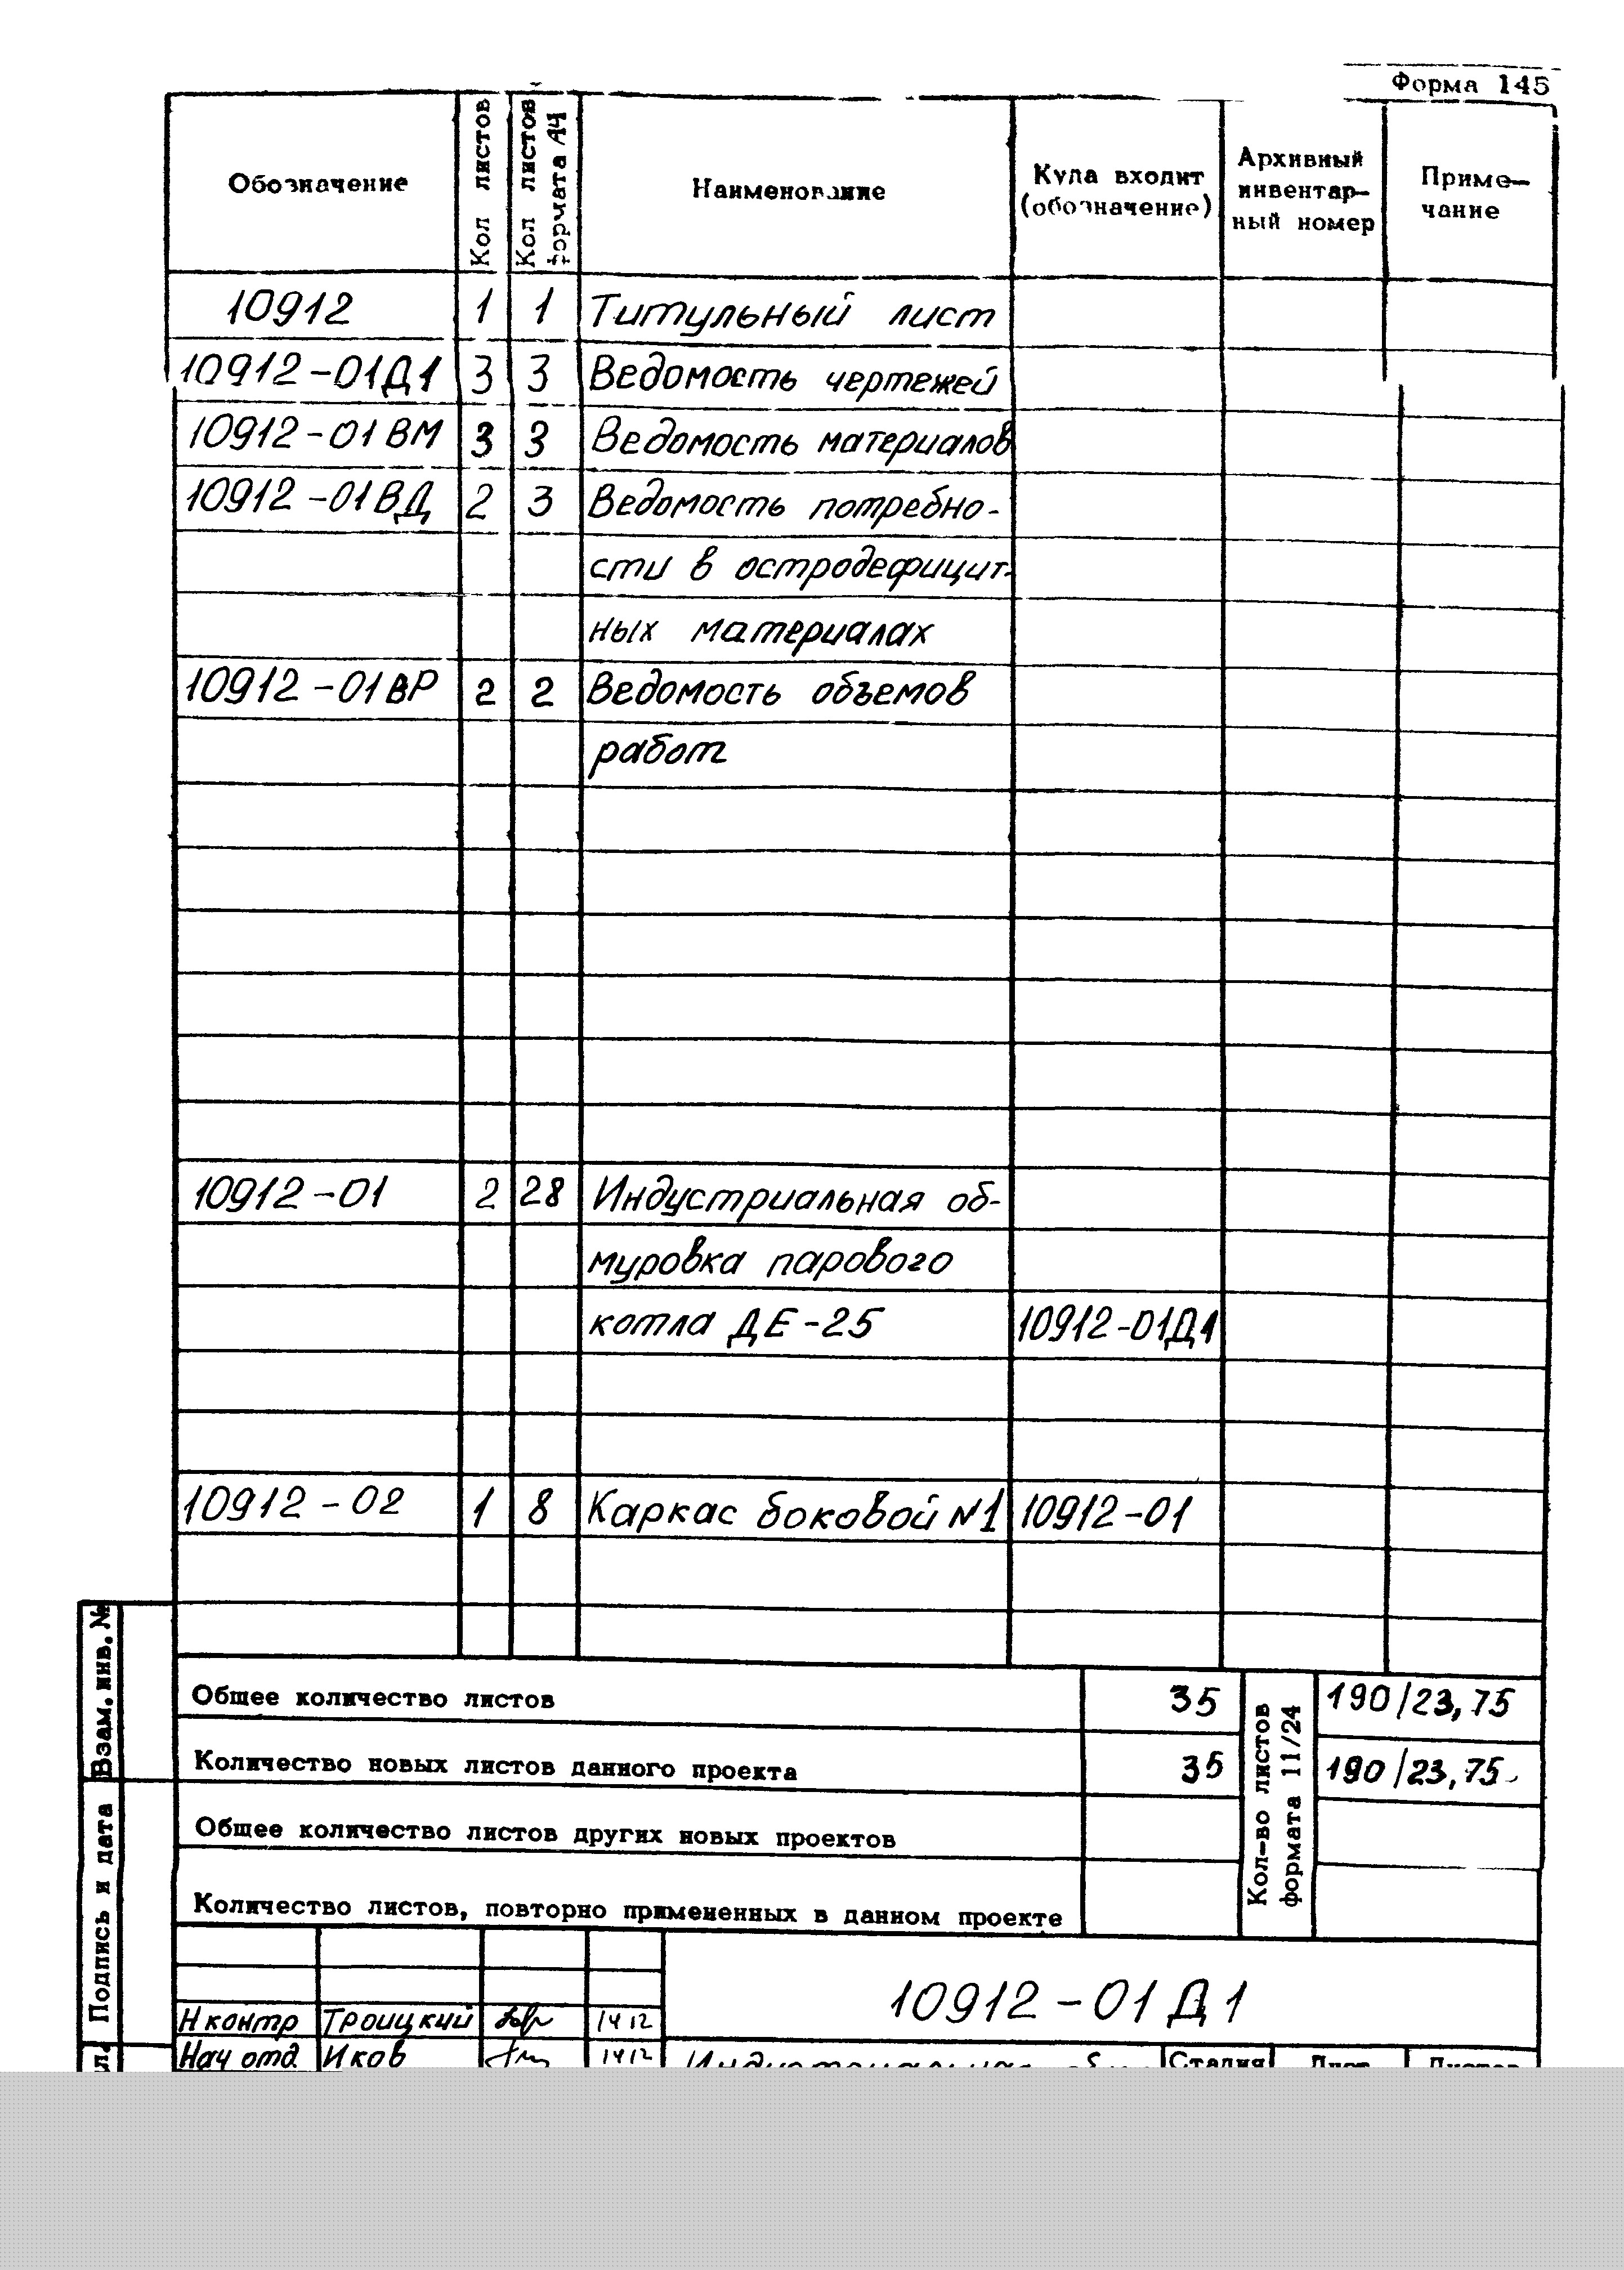 Форма 145
Обозначение
Кол листов
Кол листов формата А4
Наименование
Куда входит (обозначение)
Архивный инвентарный номер
Приме-чание
10912 1 1 Титульный лист
10912-01Д1 3 3 Ведомость чертежей
10912-01ВМ 3 3 Ведомость материалов
10912-01ВД 2 3 Ведомость потребно-
сти в остродефицит-
ных материалах
10912-01ВР 2 2 Ведомость объемов
работ
10912-01 2 28 Индустриальная об-
муровка парового
котла ДЕ-25 10912-01Д1
10912-02 1 8 Каркас боковой N1 10912-01
Общее количество листов 35 190/23,75
Количество новых листов данного проекта 35 190/23,75
Общее количество листов других новых проектов
Количество листов, повторно примененных в данном проекте
Кол-во листов
формата 11/24
Взам. инв. №
Подпись и дата
10912-01Д1
Н контр Троицкий 14 12
Нач отд Иков 14 12
Стадия Лист Листов